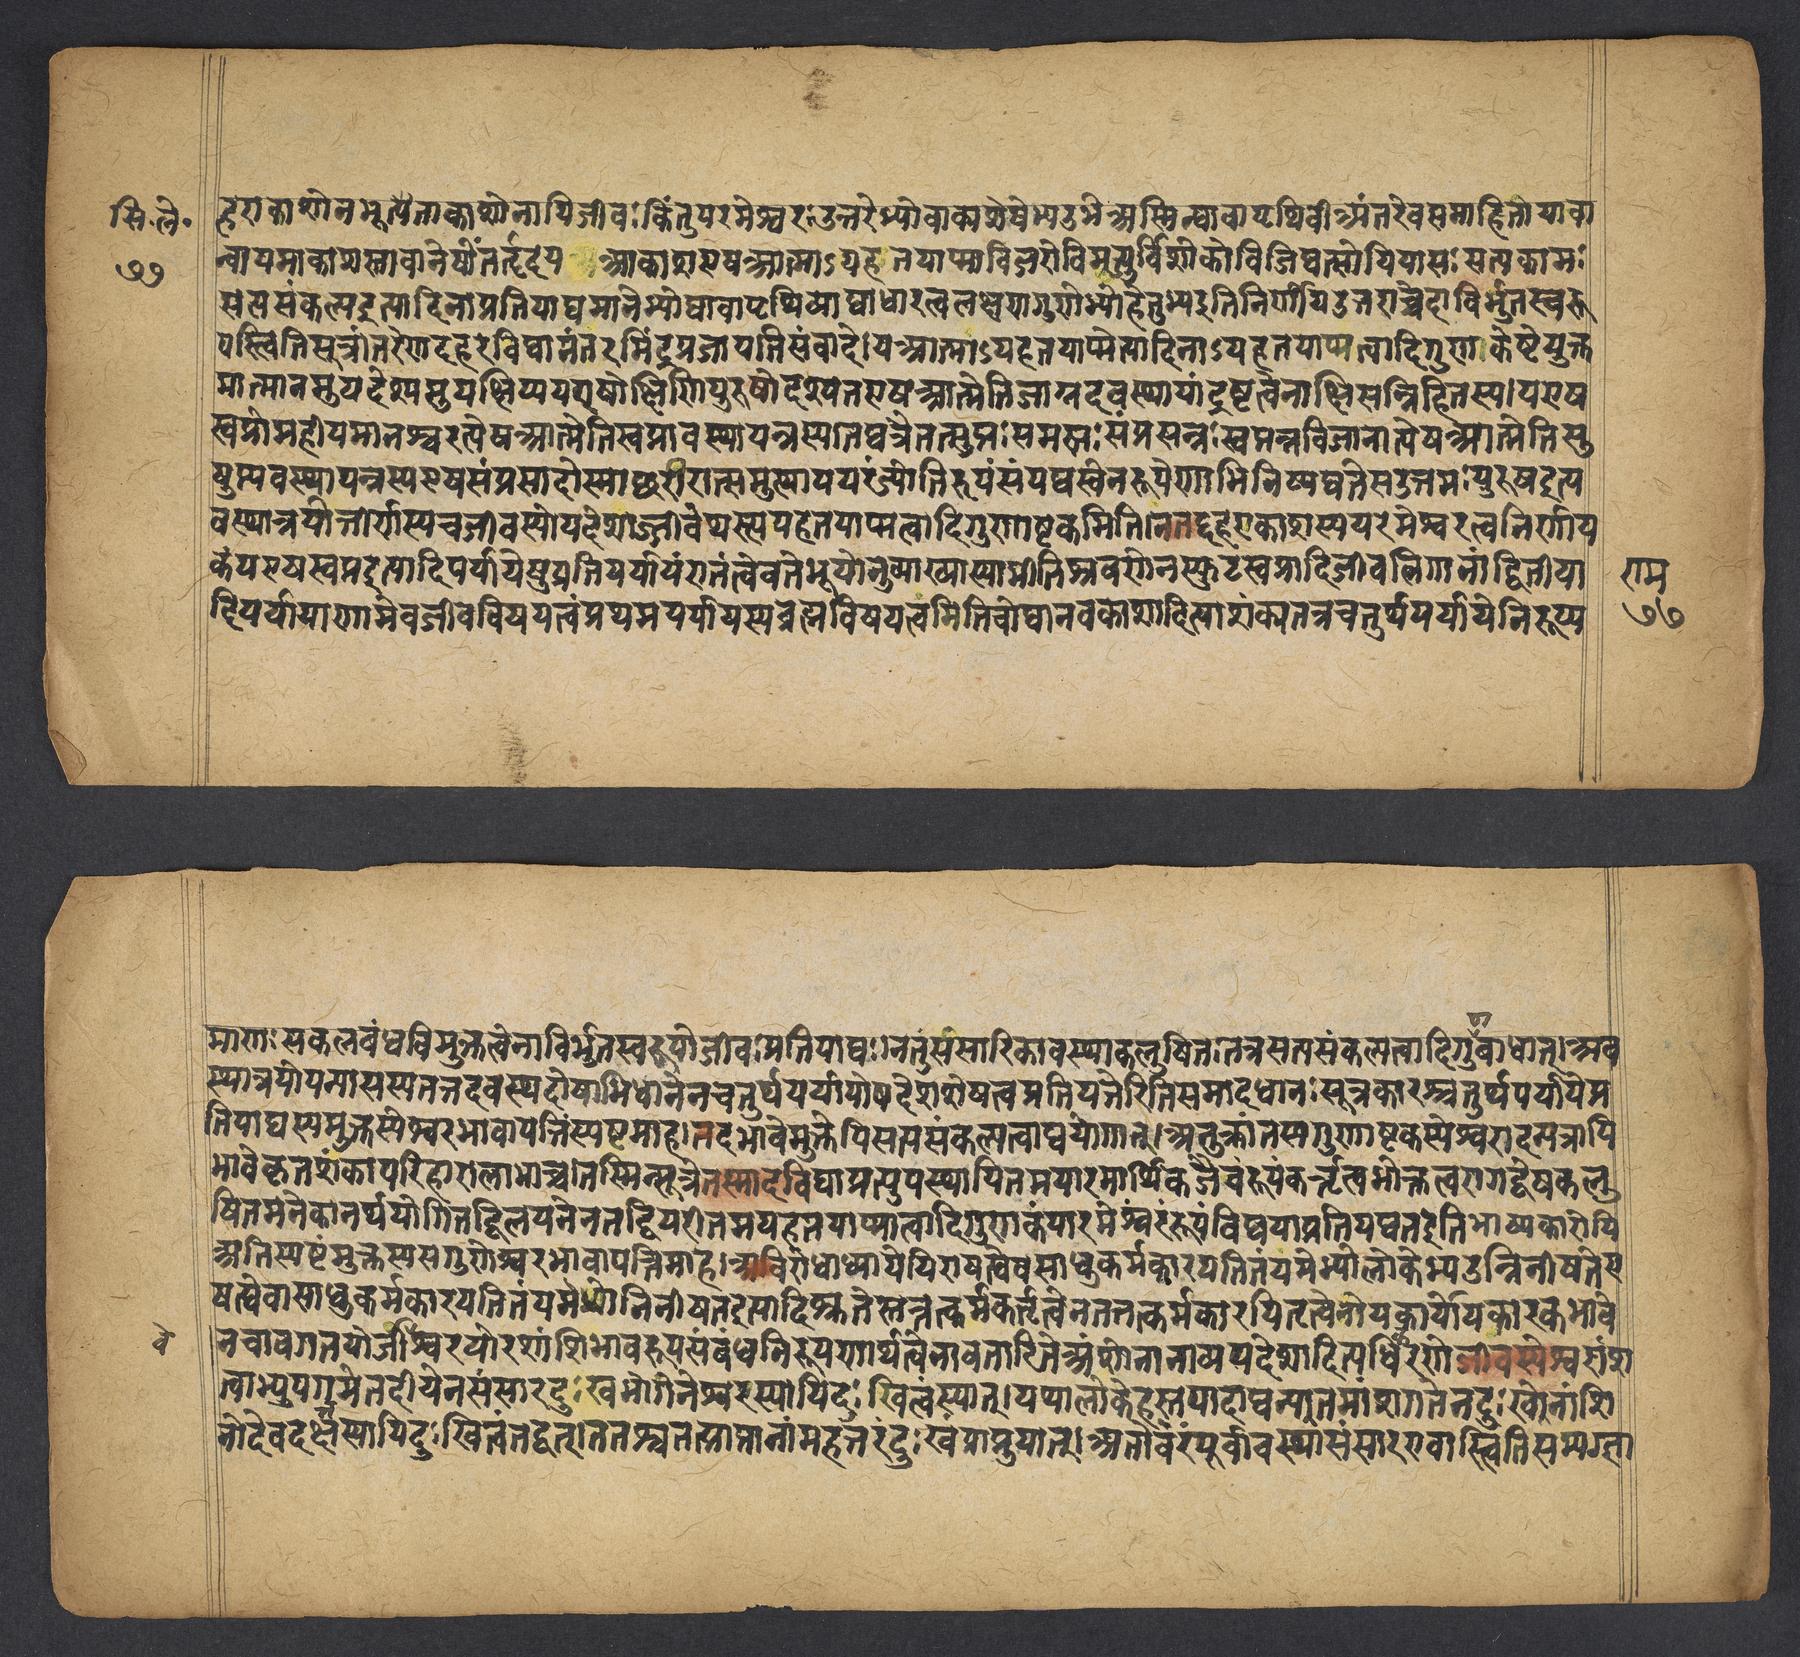 सि.ले.
७७
हराकाशो न भूताकाशो नापि जीवः किंतु परमेश्वरः उत्तरेभ्यो वाक्यशेषेभ्य उभे अस्मिन्द्यावापृथिवी अंतरेव समाहिते यावा
न्वा यमाकाशस्तावानेषोंतर्हृदय आकाश एष आत्माऽपहतपाप्मा विजरो विमृत्युर्विशोको विजिघत्सोपिपासः सत्यकामः
सत्यसंकल्प इत्यादिना प्रतिपाद्यमानेभ्यो द्यावापृथिव्याद्याधारत्वलक्षणगुणेभ्यो हेतुभ्य इति निर्णीय उत्तराच्चेदाविर्भूतस्वरू
पस्त्विति सूत्रांतरेण दहरविद्यानंतरमिंद्रप्रजापतिसंवादे य आत्माऽपहतपाप्मेत्यादिनाऽपहतपाप्मत्वादिगुणाष्टकयुक्त
मात्मानमुपदेश्यमुपक्षिप्य य एषोक्षिणि पुरुषो दृश्यत एष आत्मेति जाग्रदवस्थायां द्रष्टृत्वेनाक्षिसन्निहितस्य य एष
स्वप्ने महीयमानश्चरत्येष आत्मेति स्वप्नावस्थापन्नस्य तद्यत्रैतत्सुप्तः समस्तः संप्रसन्नः स्वप्नं न विजानात्येष आत्मेति सु
षुप्त्यवस्थापन्नस्य एष संप्रसादोस्माच्छरीरात्समुत्थाय परं ज्योतिरूपं संपद्य स्वेन रूपेणाभिनिष्पद्यते स उत्तमः पुरुष इत्य
वस्थात्रयोत्तीर्णस्य च जीवस्योपदेशाज्जीवेप्यस्त्यपहतपाप्मत्वादिगुणाष्टकमिति न तद्दहराकाशस्य परमेश्वरत्वनिर्णाय
कं य एष स्वप्न इत्यादिपर्यायेषु प्रतिपर्यायं एतं त्वेव ते भूयोनुव्याख्यास्यामीति श्रवणेन स्फुटस्वप्नादिजीवलिंगानां द्वितीया
राम
७७
दिपर्यायाणामेव जीवविषयत्वं प्रथमपर्यायस्य ब्रह्मविषयत्वमिति चोद्यानवकाशादित्याशंक्य तत्र चतुर्थपर्याये निरूप्य
माणः सकलबंधविमुक्तत्वेनाविर्भूतस्वरूपो जीवः प्रतिपाद्यः न तु संसारिकावस्थाकलुषितः तत्र सत्यसंकल्पत्वादिगुणबाधात् अव
स्थात्रयोपन्यासस्य तत्तदवस्थदोषाभिधानेन चतुर्थपर्यायोपदेशशेषत्वप्रतिपत्तेरिति समादधानः सूत्रकारश्चतुर्थपर्याये प्र
तिपाद्यस्य मुक्तस्येश्वरभावापत्तिं स्पष्टमाह तदभावे मुक्तेपि सत्यसंकल्पत्वाद्ययोगात् अनुक्रांतस्य गुणाष्टकस्येश्वरादन्यत्रापि
भावे कृतशंकापरिहारालाभाच्च तस्मिन्सूत्रे तस्मादविद्याप्रत्युपस्थापितमपारमार्थिकं जैवं रूपं कर्तृत्वभोक्तृत्वरागद्वेषकलु
षितमनेकानर्थयोगि तद्विलयनेन तद्विपरीतमपहतपाप्मत्वादिगुणकं पारमेश्वरं रूपं विद्यया प्रतिपद्यत इति भाष्यकारोपि
अतिस्पष्टं मुक्तस्य सगुणेश्वरभावापत्तिमाह अविरोधाध्यायेपि एष ह्येव साधु कर्म कारयति तं यमेभ्यो लोकेभ्य उन्निनीषते ए
ष ह्येवासाधु कर्म कारयति तं यमधो निनीषत इत्यादिश्रुतेस्तत्तत्कर्मकर्तृत्वेन तत्तत्कर्मकारयितृत्वेन चोपकार्योपकारकभावे
वे
नावगतयोर्जीवेश्वरयोरंशांशिभावरूपसंबंधनिरूपणार्थत्वेनावतारिते अंशो नानाव्यपदेशादित्यधिकरणे जीवस्येश्वरांश
त्वाभ्युपगमे तदीयेन संसारदुःखभोगेनेश्वरस्यापि दुःखित्वं स्यात् यथा लोके हस्तपादाद्यन्यतमांशगतेन दुःखेनांशि
नो देवदत्तस्यापि दुःखित्वं तद्वत् ततश्च तत्प्राप्तानां महत्तरं दुःखं प्राप्नुयात् अतो वरं पूर्वावस्था संसार एवास्त्विति सम्यग्ज्ञा